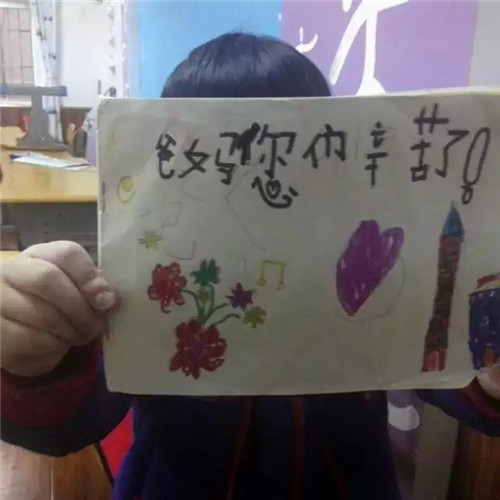 爸妈您们辛苦了!